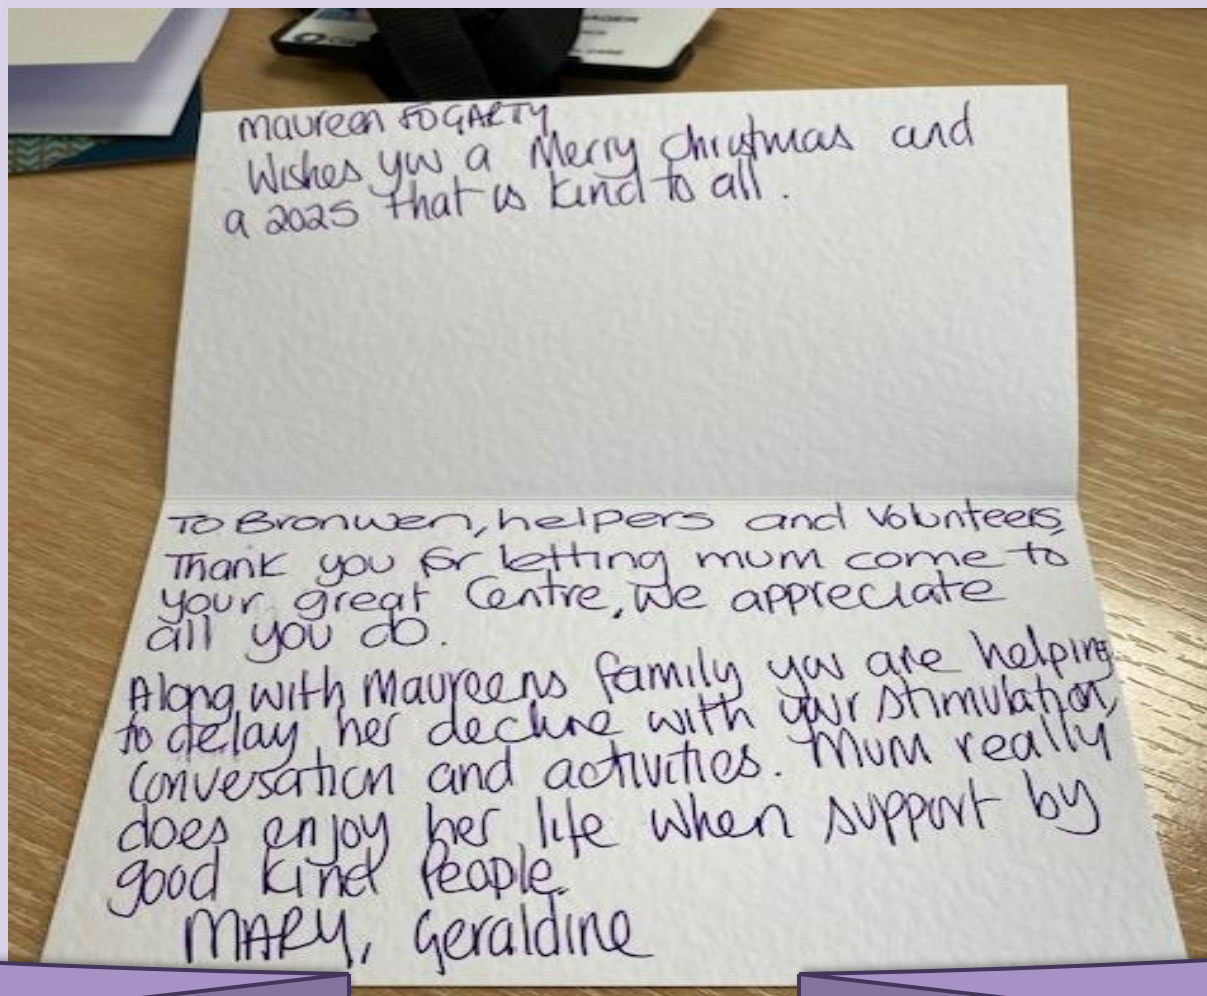 Maureen FOGARTY
Wishes you a Merry Christmas and
a 2025 that is kind to all.
To Bronwen, helpers and Volunteers,
Thank you for letting mum come to
your great Centre, we appreciate
all you do.
Along with Maureens family you are helping
to delay her decline with your stimulation,
conversation and activities. Mum really
does enjoy her life when support by
good kind People.
MARY, Geraldine